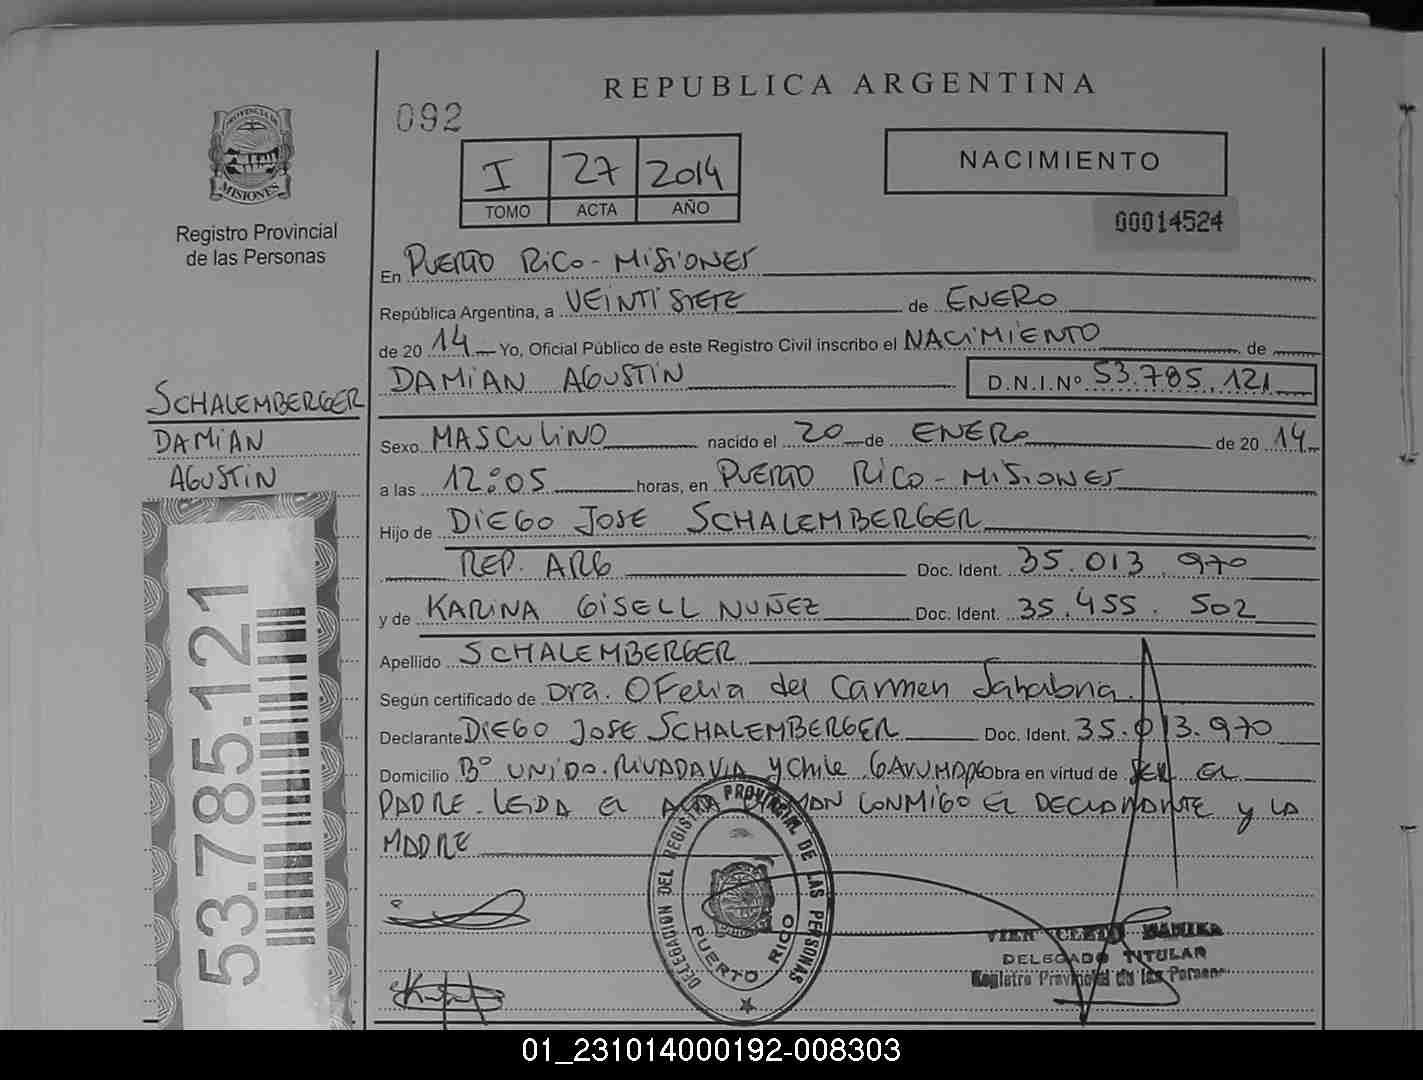 REPUBLICA ARGENTINA
092
PROVINCIA DE
MISIONES
Registro Provincial
de las Personas
I 27 2014
TOMO ACTA AÑO
NACIMIENTO
00014524
En PUERTO RICO - MISIONES
República Argentina, a VEINTISIETE de ENERO
de 20 14 Yo, Oficial Público de este Registro Civil inscribo el NACIMIENTO de
DAMIAN AGUSTIN D.N.I.Nº 53.785.121
SCHALEMBERGER
DAMIAN
AGUSTIN
53.785.121
Sexo MASCULINO nacido el 20 de ENERO de 20 14
a las 12:05 horas, en PUERTO RICO - MISIONES
Hijo de DIEGO JOSE SCHALEMBERGER
REP. ARG Doc. Ident. 35.013.970
y de KARINA GISELL NUÑEZ Doc. Ident. 35.455.502
Apellido SCHALEMBERGER
Según certificado de Dra. OFelia del Carmen
Declarante DIEGO JOSE SCHALEMBERGER Doc. Ident. 35.013.970
Domicilio Bº UNIDO. RIVADAVIA y Chile GARUHAPE Obra en virtud de SER EL
PADRE. LEIDA EL ACTA FIRMAN CONMIGO EL DECLARANTE y LA
MADRE
DELEGACION DEL REGISTRO PROVINCIAL DE LAS PERSONAS
PUERTO RICO
DELEGADO TITULAR
Registro Provincial de las Personas
01_231014000192-008303